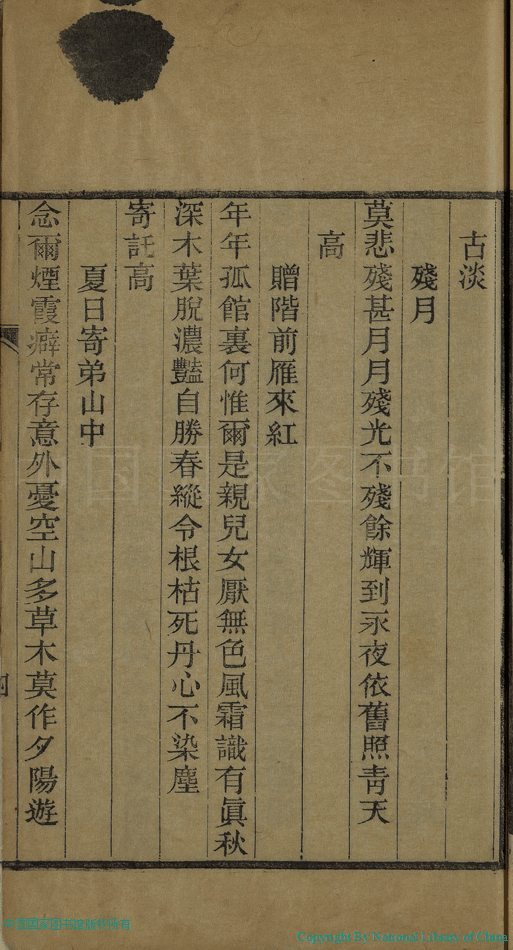 古淡
殘月
莫悲殘甚月月殘光不殘餘輝到永夜依舊照青天
高
贈階前雁來紅
年年孤館裏何惟爾是親兒女厭無色風霜識有眞秋
深木葉脫濃豔自勝春縱令根枯死丹心不染塵
寄託高
夏日寄弟山中
念爾煙霞癖常存意外憂空山多草木莫作夕陽遊
四
中国国家图书馆版权所有
Copyright By National Library of China